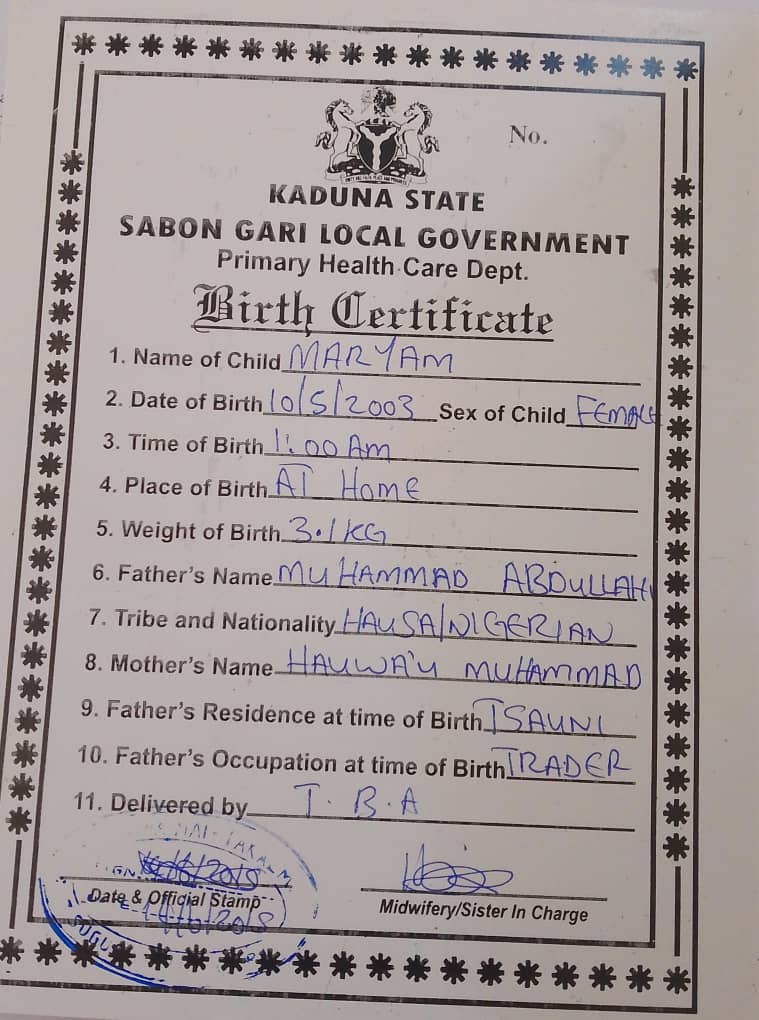 No.
KADUNA STATE
SABON GARI LOCAL GOVERNMENT
Primary Health Care Dept.
Birth Certificate
1. Name of Child MARYAM
2. Date of Birth 10/5/2003 Sex of Child FEMALE
3. Time of Birth 1:00 Am
4. Place of Birth AT Home
5. Weight of Birth 3.1KG
6. Father's Name MUHAMMAD ABDULLAHI
7. Tribe and Nationality HAUSA/NIGERIAN
8. Mother's Name HAUWA'U MUHAMMAD
9. Father's Residence at time of Birth TSAUNI
10. Father's Occupation at time of Birth TRADER
11. Delivered by T.B.A
Date & Official Stamp
Midwifery/Sister In Charge